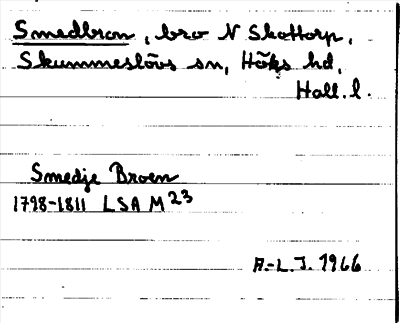 Smedbron, bro N Skottorp,
Skummeslövs sn, Höks hd,
Hall. l.
Smedje Broen
1798-1811 LSA M 23
A.-L. J. 1966